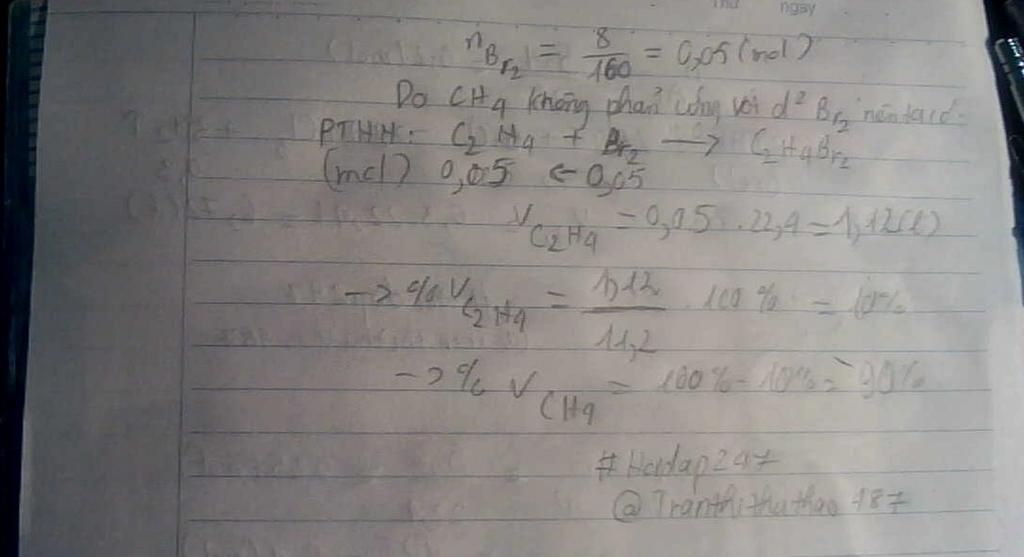 Thứ ngày
nBr2 = 8/160 = 0,05 (mol)
Do CH4 không phản ứng với d² Br2 nên ta có:
PTHH: C2H4 + Br2 → C2H4Br2
(mol) 0,05 ← 0,05
VC2H4 = 0,05 . 22,4 = 1,12 (l)
→ % VC2H4 = 1,12/11,2 . 100% = 10%
→ % VCH4 = 100% - 10% = 90%
#Hoidap247
@Tranthithuthao187